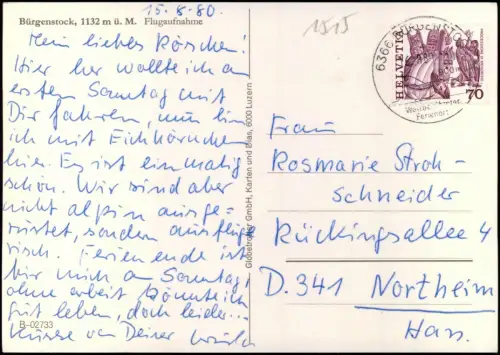 15.8.80.
Bürgenstock, 1132 m ü. M. Flugaufnahme
Mein liebes Röschen!
Hier her wollte ich am
ersten Sonntag mit
Dir fahren, nun bin
ich mit Eichhörnchen
hier. Es ist einmalig
schön. Wir sind aber
nicht alpin ausge-
rüstet, sondern ausflüg-
risch. Ferienende ist
für mich am Sonntag,
ohne arbeit könnte ich
gut leben, doch leider...
Küsse von Deiner
B-02733
Globetrotter GmbH, Karten und Bilas, 6000 Luzern
1515
6366 BÜRGENSTOCK
Ferienort
HELVETIA
70
Frau
Rosmarie Stroh-
schneider
Rückingsallee 4
D.341 Northeim
Han.